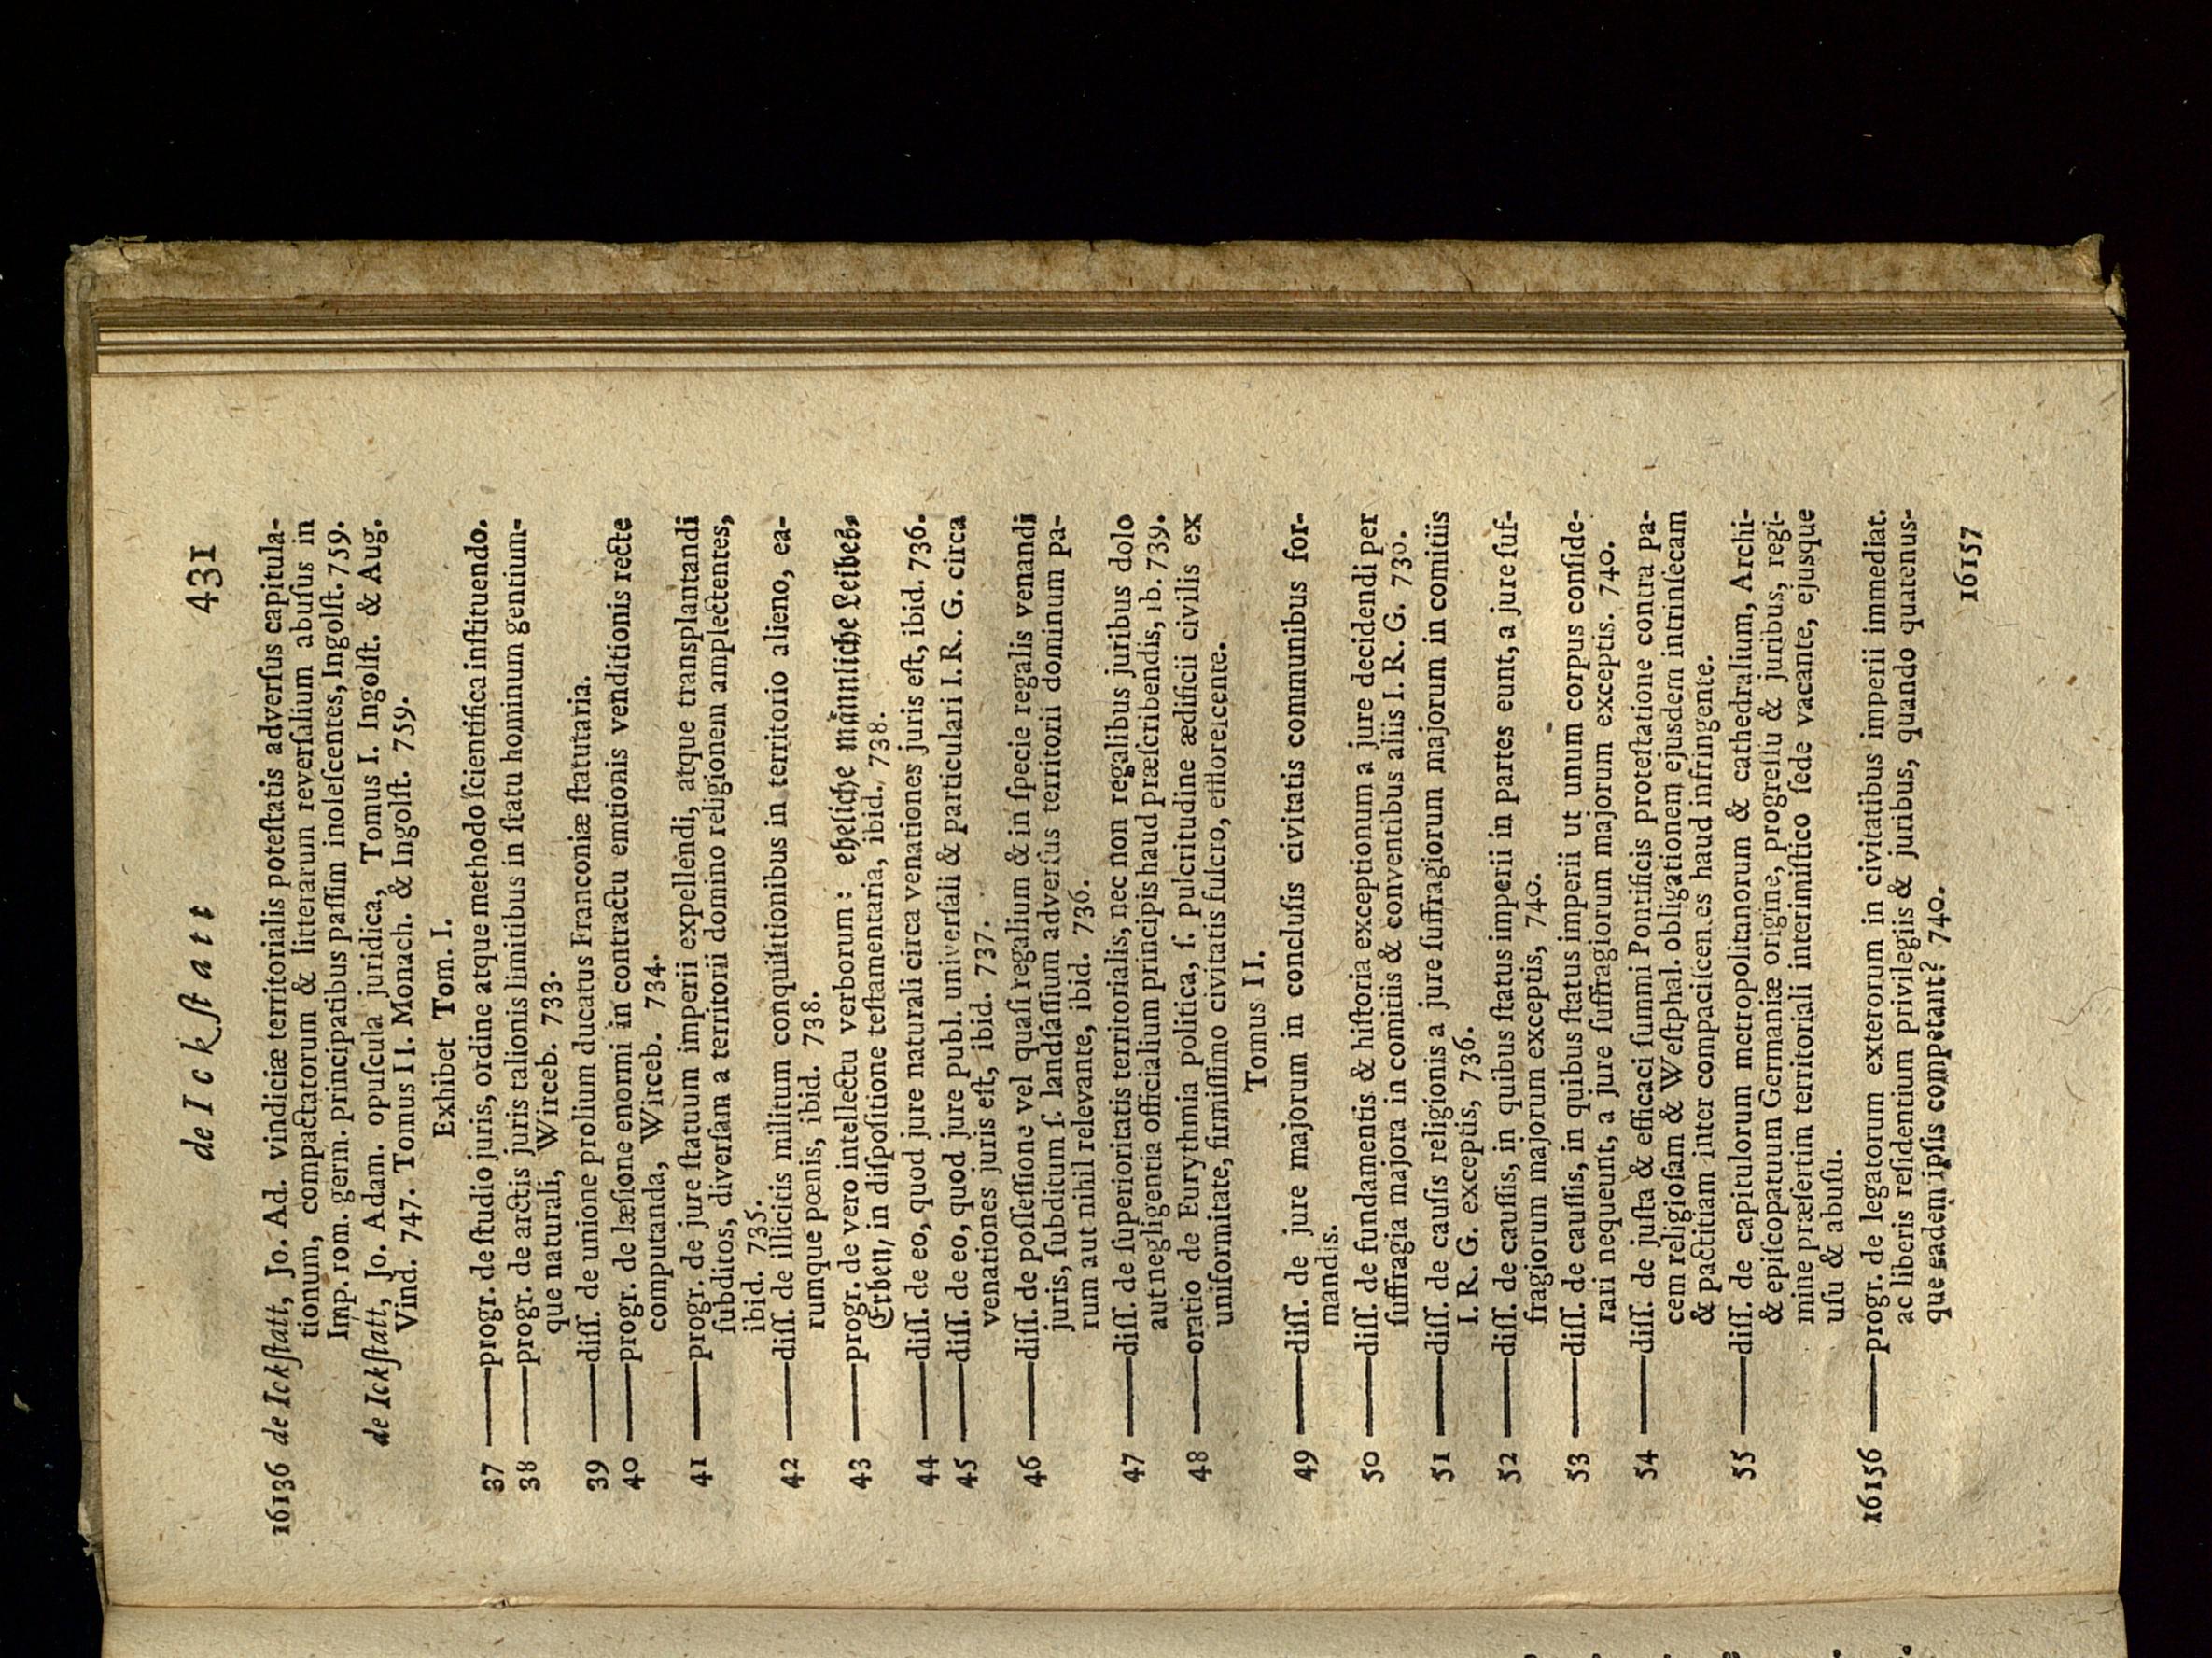 de Ickſtatt 431
16136 de Ickſtatt, Jo. Ad. vindiciæ territorialis poteſtatis adverſus capitula-
tionum, compactatorum & litterarum reverſalium abuſus in
Imp. rom. germ. principatibus paſſim inoleſcentes, Ingolſt. 759.
de Ickſtatt, Jo. Adam. opuſcula juridica, Tomus I. Ingolſt. & Aug.
Vind. 747. Tomus II. Monach. & Ingolſt. 759.
Exhibet Tom. I.
37 —— progr. de ſtudio juris, ordine atque methodo ſcientifica inſtituendo.
38 —— progr. de arctis juris talionis limitibus in ſtatu hominum gentium-
que naturali, Wirceb. 733.
39 —— diſſ. de unione prolium ducatus Franconiæ ſtatutaria.
40 —— progr. de læſione enormi in contractu emtionis venditionis recte
computanda, Wirceb. 734.
41 —— progr. de jure ſtatuum imperii expellendi, atque transplantandi
ſubditos, diverſam a territorii domino religionem amplectentes,
ibid. 735.
42 —— diſſ. de illicitis militum conquiſitionibus in territorio alieno, ea-
rumque pœnis, ibid. 738.
43 —— progr. de vero intellectu verborum: eheliche männliche Leibes-
Erben, in diſpoſitione teſtamentaria, ibid. 738.
44 —— diſſ. de eo, quod jure naturali circa venationes juris eſt, ibid. 736.
45 —— diſſ. de eo, quod jure publ. univerſali & particulari I. R. G. circa
venationes juris eſt, ibid. 737.
46 —— diſſ. de poſſeſſione vel quaſi regalium & in ſpecie regalis venandi
juris, ſubditum ſ. landſaſſium adverſus territorii dominum pa-
rum aut nihil relevante, ibid. 736.
47 —— diſſ. de ſuperioritatis territorialis, nec non regalibus juribus dolo
aut negligentia officialium principis haud præſcribendis, ib. 739.
48 —— oratio de Eurythmia politica, ſ. pulcritudine ædificii civilis ex
uniformitate, firmiſſimo civitatis fulcro, effloreſcente.
Tomus II.
49 —— diſſ. de jure majorum in concluſis civitatis communibus for-
mandis.
50 —— diſſ. de fundamentis & hiſtoria exceptionum a jure decidendi per
ſuffragia majora in comitiis & conventibus aliis I. R. G. 730.
51 —— diſſ. de cauſis religionis a jure ſuffragiorum majorum in comitiis
I. R. G. exceptis, 736.
52 —— diſſ. de cauſſis, in quibus ſtatus imperii in partes eunt, a jure ſuf-
fragiorum majorum exceptis, 740.
53 —— diſſ. de cauſſis, in quibus ſtatus imperii ut unum corpus conſide-
rari nequeunt, a jure ſuffragiorum majorum exceptis. 740.
54 —— diſſ. de juſta & efficaci ſummi Pontificis proteſtatione contra pa-
cem religioſam & Weſtphal. obligationem ejusdem intrinſecam
& pactitiam inter compaciſcentes haud infringente.
55 —— diſſ. de capitulorum metropolitanorum & cathedralium, Archi-
& epiſcopatuum Germaniæ origine, progreſſu & juribus, regi-
mine præſertim territoriali interimiſtico ſede vacante, ejusque
uſu & abuſu.
16156 —— progr. de legatorum exterorum in civitatibus imperii immediat.
ac liberis reſidentium privilegiis & juribus, quando quatenus-
que eadem ipſis competant? 740.
16157